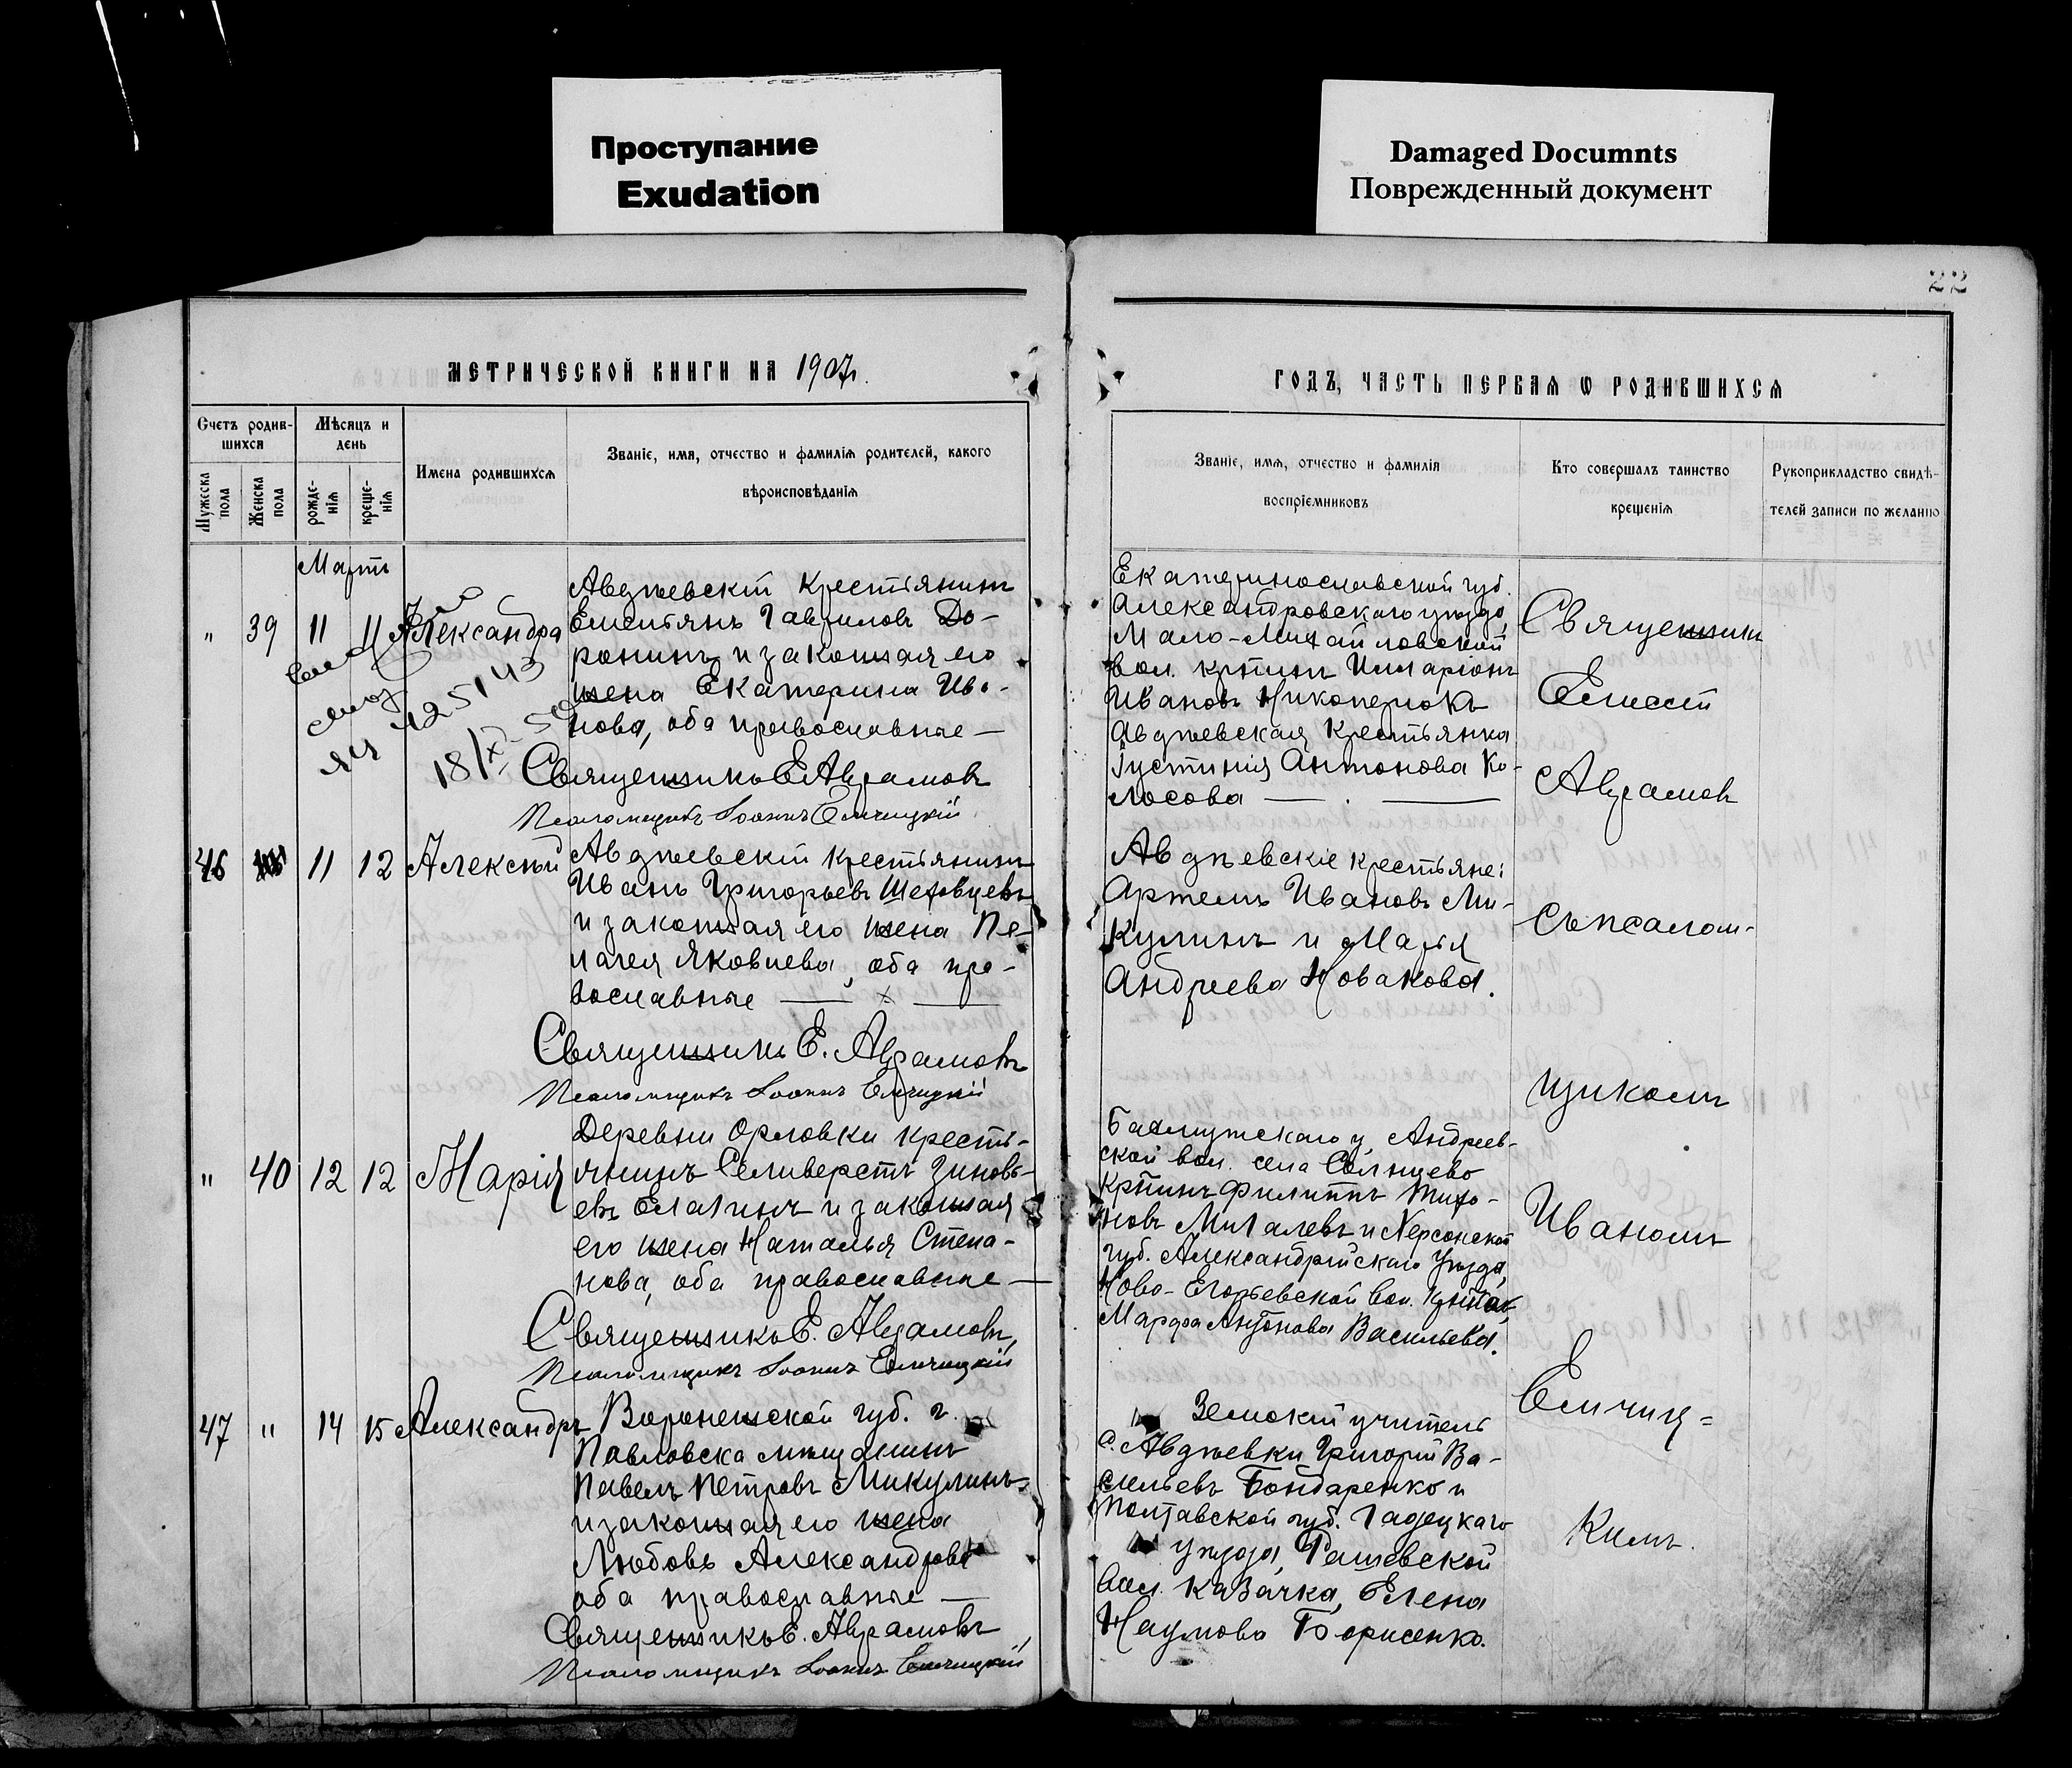 Проступание
Exudation
Damaged Documnts
Поврежденный документ
22
МЕТРИЧЕСКОЙ КНИГИ НА 1907 г.
ГОДЪ, ЧАСТЬ ПЕРВАЯ Ѡ РОДИВШИХСЯ
Счетъ родив-
шихся
Мужеска
пола
Женска
пола
Мѣсяцъ и
день
рожде-
нія
креще-
нія
Имена родившихся
Званіе, имя, отчество и фамилія родителей, какого
вѣроисповѣданія
Званіе, имя, отчество и фамилія
воспріемниковъ
Кто совершалъ таинство
крещенія
Рукоприкладство свидѣ-
телей записи по желанію
Мартъ
" 39 11 11 Александра
Авдѣевскій крестьянинъ
Емельянъ Гавриловъ До-
ронинъ и законная его
жена Екатерина Ива-
нова, оба православные —
125143
Священникъ Е Авдамовъ
Псаломщикъ Іоаннъ Еличицкій
Екатеринославской губ.
Александровскаго уѣзда,
Мало-Михайловской
вол. крнинъ Илларіонъ
Ивановъ
Авдѣевская крестьянка
Іустинія Антонова Ко-
лосова
46 11 12 Алексѣй
Авдѣевскій крестьянинъ
Иванъ Григорьевъ Шеховцевъ
и законная его жена Пе-
лагея Яковлева, оба пра-
вославные
Священникъ Е. Авдамовъ
Псаломщикъ Іоаннъ Еличицкій
Авдѣевскіе крестьяне:
Артемъ Ивановъ Ми-
кулинъ и Марія
Андреева Новакова.
" 40 12 12 Марія
Деревни Орловки кресть-
янинъ Селиверстъ Зиновь-
евъ Елагинъ и законная
его жена Наталья Степа-
нова, оба православные —
Священникъ Е. Авдамовъ,
Псаломщикъ Іоаннъ Еличицкій
Бахмутскаго у. Андреев-
ской вол. села Солнцево
крнинъ Филиппъ Тихо-
новъ Михалевъ и Херсонской
губ. Александрійскаго уѣзда,
Ново-Егорьевской вол.
Марфа Антонова Васильева.
47 " 14 15 Александръ
Воронежской губ. г.
Павловска мѣщанинъ
Павелъ Петровъ Микулинъ
и законная его жена
Любовь Александрова
оба православные —
Священникъ Е. Авдамовъ
Псаломщикъ Іоаннъ Еличицкій
Земскій учитель
с. Авдѣевки Григорій Ва-
сильевъ Бондаренко и
Полтавской губ. Гадецкаго
уѣзда, Рашевской
вол. казачка, Елена
Наумова Борисенко.
Священникъ
Авдамовъ
съ псалом-
щикомъ
Иваномъ
Еличиц-
кимъ.